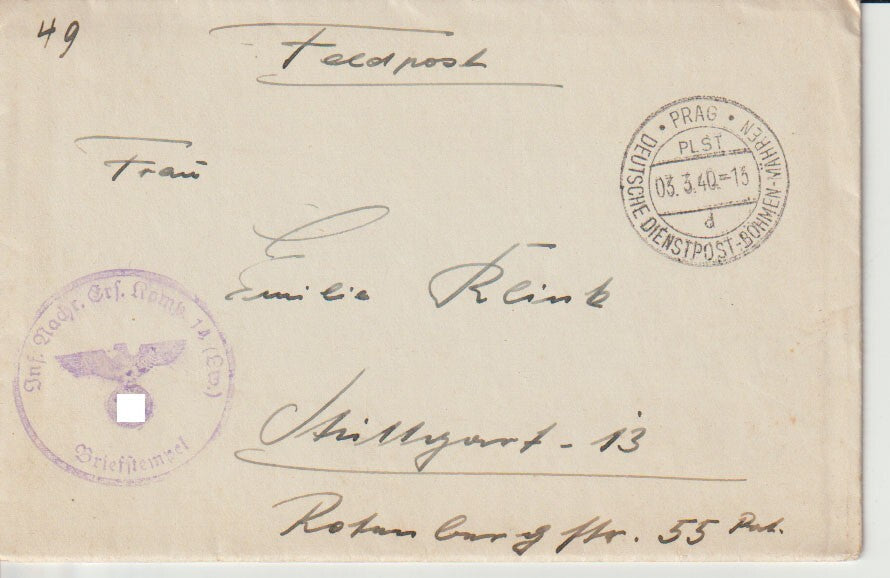 49
Feldpost
PRAG
PLST
03. 3.40.-13
d
DEUTSCHE DIENSTPOST-BÖHMEN-MÄHREN
Frau
Emilie Klink
Inf. Nachr. Ers. Komp. 14 (Etw.)
Briefstempel
Stuttgart - 13
Rotenbergstr. 55 Pat.